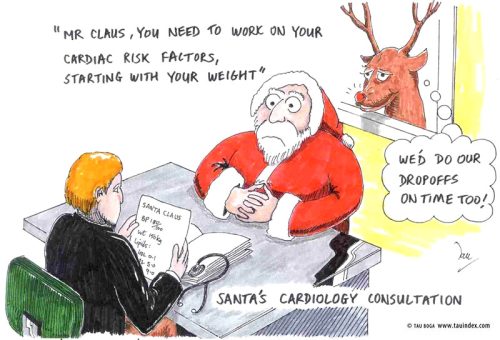 "MR CLAUS, YOU NEED TO WORK ON YOUR
CARDIAC RISK FACTORS,
STARTING WITH YOUR WEIGHT"
WE'D DO OUR
DROPOFFS
ON TIME TOO!
SANTA CLAUS
Lipids:
SANTA'S CARDIOLOGY CONSULTATION
© TAU BOGA www.tauindex.com